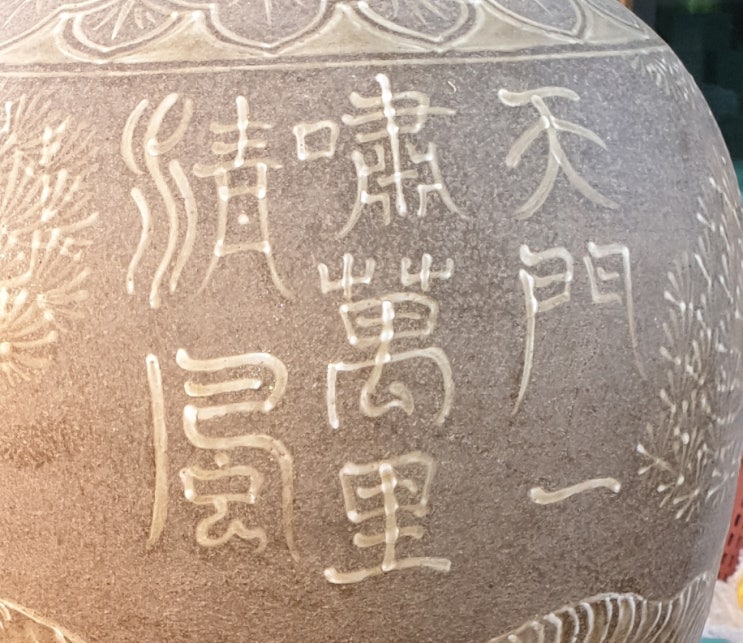 天門一
嘯萬里
清風